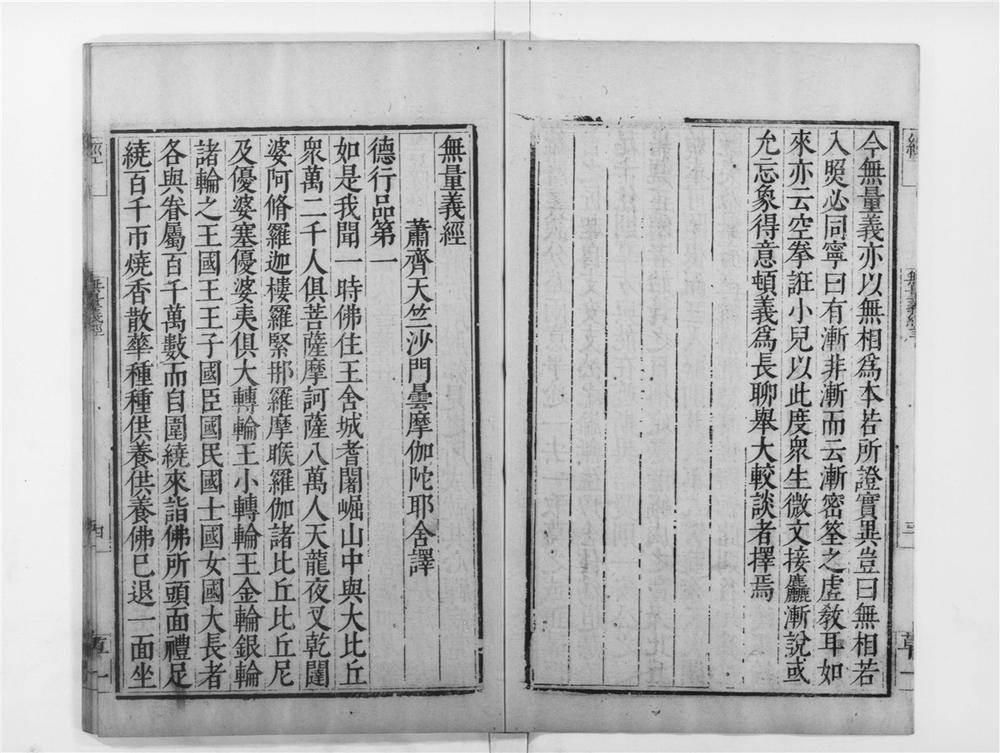 今無量義亦以無相爲本若所證實異豈曰無相若
入照必同寧曰有漸非漸而云漸密筌之虛敎耳如
來亦云空拳誑小兒以此度衆生微文接麤漸說或
允忘象得意頓義爲長聊舉大較談者擇焉
無量義經
蕭齊天竺沙門曇摩伽陀耶舍譯
德行品第一
如是我聞一時佛住王舍城耆闍崛山中與大比丘
衆萬二千人俱菩薩摩訶薩八萬人天龍夜叉乾闥
婆阿脩羅迦樓羅緊那羅摩睺羅伽諸比丘比丘尼
及優婆塞優婆夷俱大轉輪王小轉輪王金輪銀輪
諸輪之王國王王子國臣國民國士國女國大長者
各與眷屬百千萬數而自圍繞來詣佛所頭面禮足
繞百千帀燒香散華種種供養供養佛已退一面坐